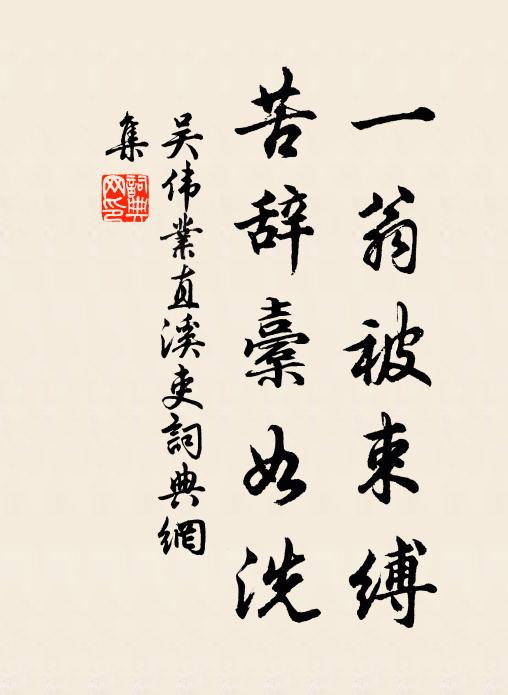 一翁被束缚
苦辞橐如洗
吴伟業直溪吏詞典網
集
詞典
网印